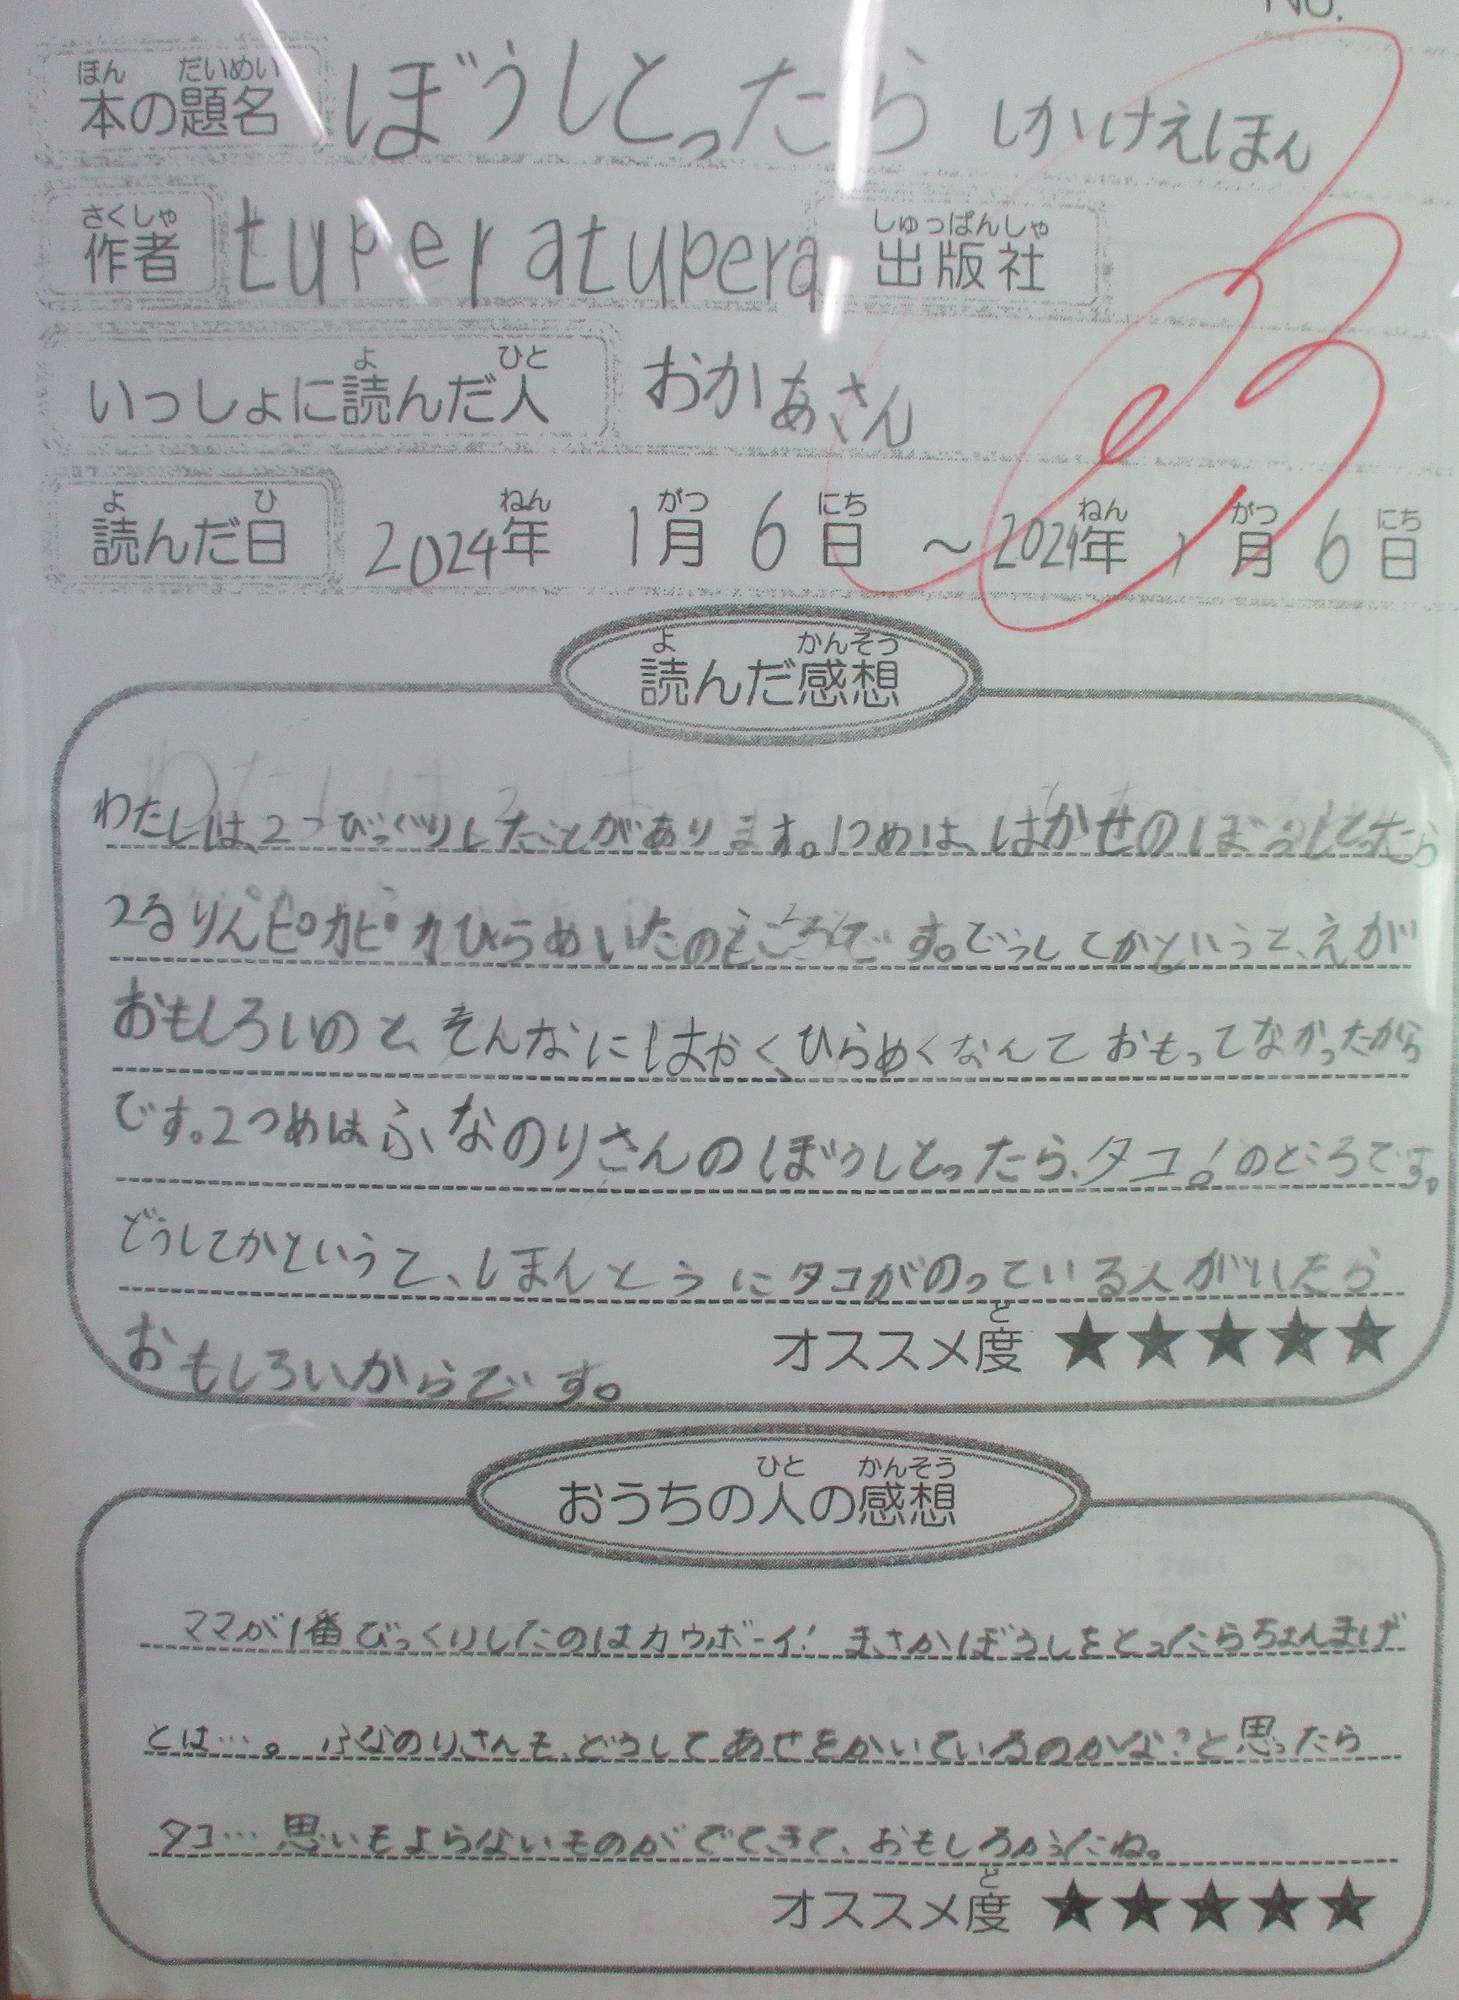 No.
ほん だいめい
本の題名 ぼうしとったら しかけえほん
さくしゃ しゅっぱんしゃ
作者 tupera tupera 出版社
よ ひと
いっしょに読んだ人 おかあさん
よ ひ ねん がつ にち ねん がつ にち
読んだ日 2024年 1月 6日 ～ 2024年 1月 6日
よ かんそう
読んだ感想
わたしは、2つびっくりしたことがあります。1つめは、はかせのぼうしとったら
つるりんピカピカひらめいたのところです。どうしてかというと、えが
おもしろいのと、そんなにはやく、ひらめくなんておもってなかったから
です。2つめはふなのりさんのぼうしとったら、タコ!のところです。
どうしてかというと、ほんとうにタコがのっている人がいたら
おもしろいからです。
ど
オススメ度 ★★★★★
ひと かんそう
おうちの人の感想
ママが1番びっくりしたのはカウボーイ! まさかぼうしをとったらちょんまげ
とは…。 ふなのりさんも、どうしてあせをかいているのかな?と思ったら
タコ… 思いもよらないものがでてきて、おもしろかったね。
ど
オススメ度 ★★★★★